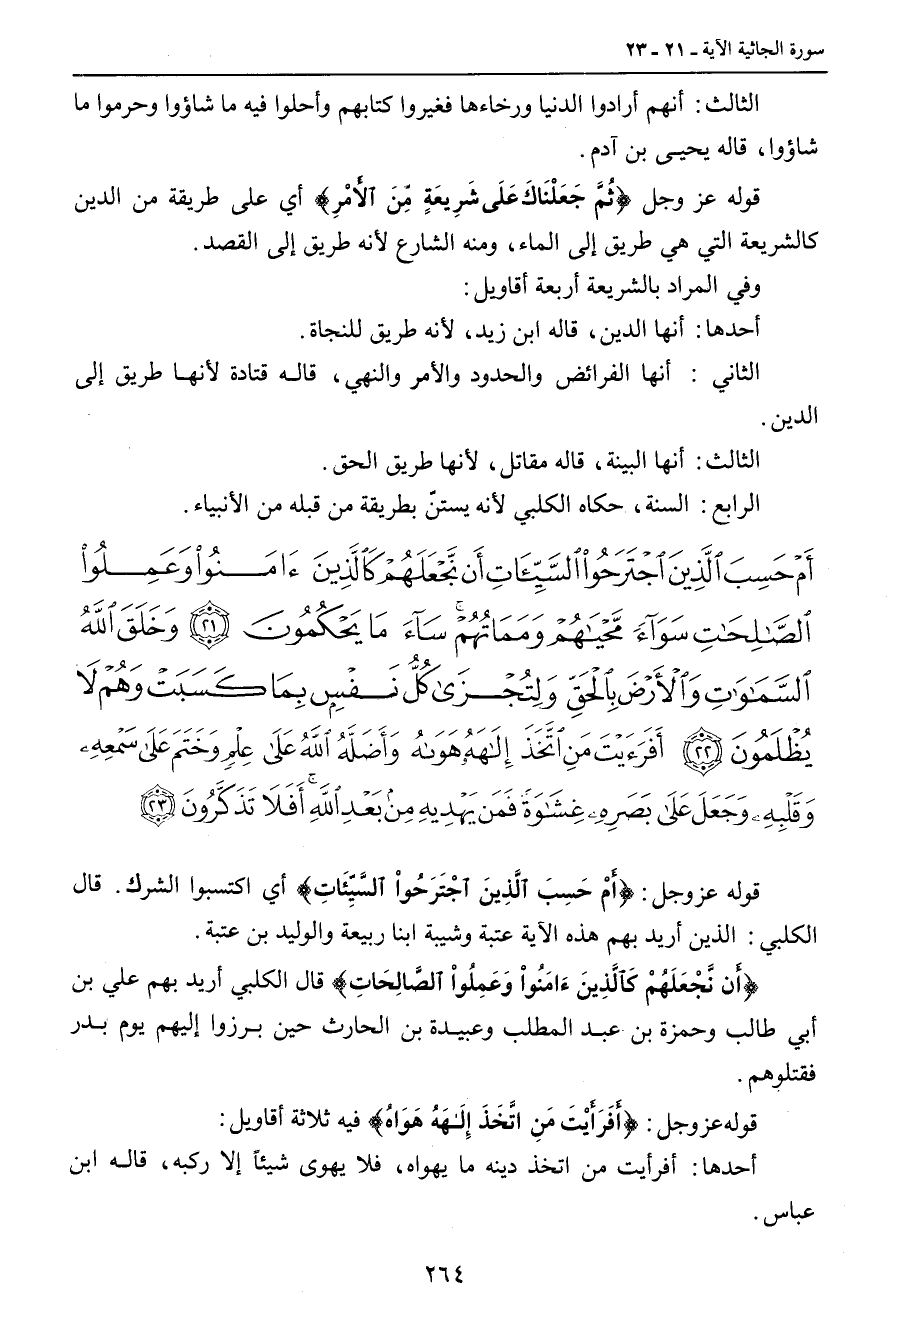 سورة الجاثية الآية ـ ٢١ ـ ٢٣
الثالث: أنهم أرادوا الدنيا ورخاءها فغيروا كتابهم وأحلوا فيه ما شاؤوا وحرموا ما
شاؤوا، قاله يحيى بن آدم.
قوله عز وجل ﴿ثُمَّ جَعَلْنَاكَ عَلَى شَرِيعَةٍ مِّنَ ٱلْأَمْرِ﴾ أي على طريقة من الدين
كالشريعة التي هي طريق إلى الماء، ومنه الشارع لأنه طريق إلى القصد.
وفي المراد بالشريعة أربعة أقاويل:
أحدها: أنها الدين، قاله ابن زيد، لأنه طريق للنجاة.
الثاني : أنها الفرائض والحدود والأمر والنهي، قاله قتادة لأنها طريق إلى
الدين.
الثالث: أنها البينة، قاله مقاتل، لأنها طريق الحق.
الرابع: السنة، حكاه الكلبي لأنه يستنّ بطريقة من قبله من الأنبياء.
أَمْ حَسِبَ ٱلَّذِينَ ٱجْتَرَحُوا۟ ٱلسَّيِّـَٔاتِ أَن نَّجْعَلَهُمْ كَٱلَّذِينَ ءَامَنُوا۟ وَعَمِلُوا۟
ٱلصَّـٰلِحَـٰتِ سَوَآءً مَّحْيَاهُمْ وَمَمَاتُهُمْ ۚ سَآءَ مَا يَحْكُمُونَ ٢١ وَخَلَقَ ٱللَّهُ
ٱلسَّمَـٰوَٰتِ وَٱلْأَرْضَ بِٱلْحَقِّ وَلِتُجْزَىٰ كُلُّ نَفْسٍۭ بِمَا كَسَبَتْ وَهُمْ لَا
يُظْلَمُونَ ٢٢ أَفَرَءَيْتَ مَنِ ٱتَّخَذَ إِلَـٰهَهُۥ هَوَىٰهُ وَأَضَلَّهُ ٱللَّهُ عَلَىٰ عِلْمٍ وَخَتَمَ عَلَىٰ سَمْعِهِۦ
وَقَلْبِهِۦ وَجَعَلَ عَلَىٰ بَصَرِهِۦ غِشَـٰوَةً فَمَن يَهْدِيهِ مِنۢ بَعْدِ ٱللَّهِ ۚ أَفَلَا تَذَكَّرُونَ ٢٣
قوله عز وجل: ﴿أَمْ حَسِبَ ٱلَّذِينَ ٱجْتَرَحُوا۟ ٱلسَّيِّئَاتِ﴾ أي اكتسبوا الشرك. قال
الكلبي: الذين أريد بهم هذه الآية عتبة وشيبة ابنا ربيعة والوليد بن عتبة.
﴿أَن نَّجْعَلَهُمْ كَٱلَّذِينَ ءَامَنُوا۟ وَعَمِلُوا۟ ٱلصَّالِحَاتِ﴾ قال الكلبي أريد بهم علي بن
أبي طالب وحمزة بن عبد المطلب وعبيدة بن الحارث حين برزوا إليهم يوم بدر
فقتلوهم.
قوله عز وجل: ﴿أَفَرَأَيْتَ مَنِ اتَّخَذَ إِلَـٰهَهُ هَوَاهُ﴾ فيه ثلاثة أقاويل:
أحدها: أفرأيت من اتخذ دينه ما يهواه، فلا يهوى شيئاً إلا ركبه، قاله ابن
عباس.
٢٦٤